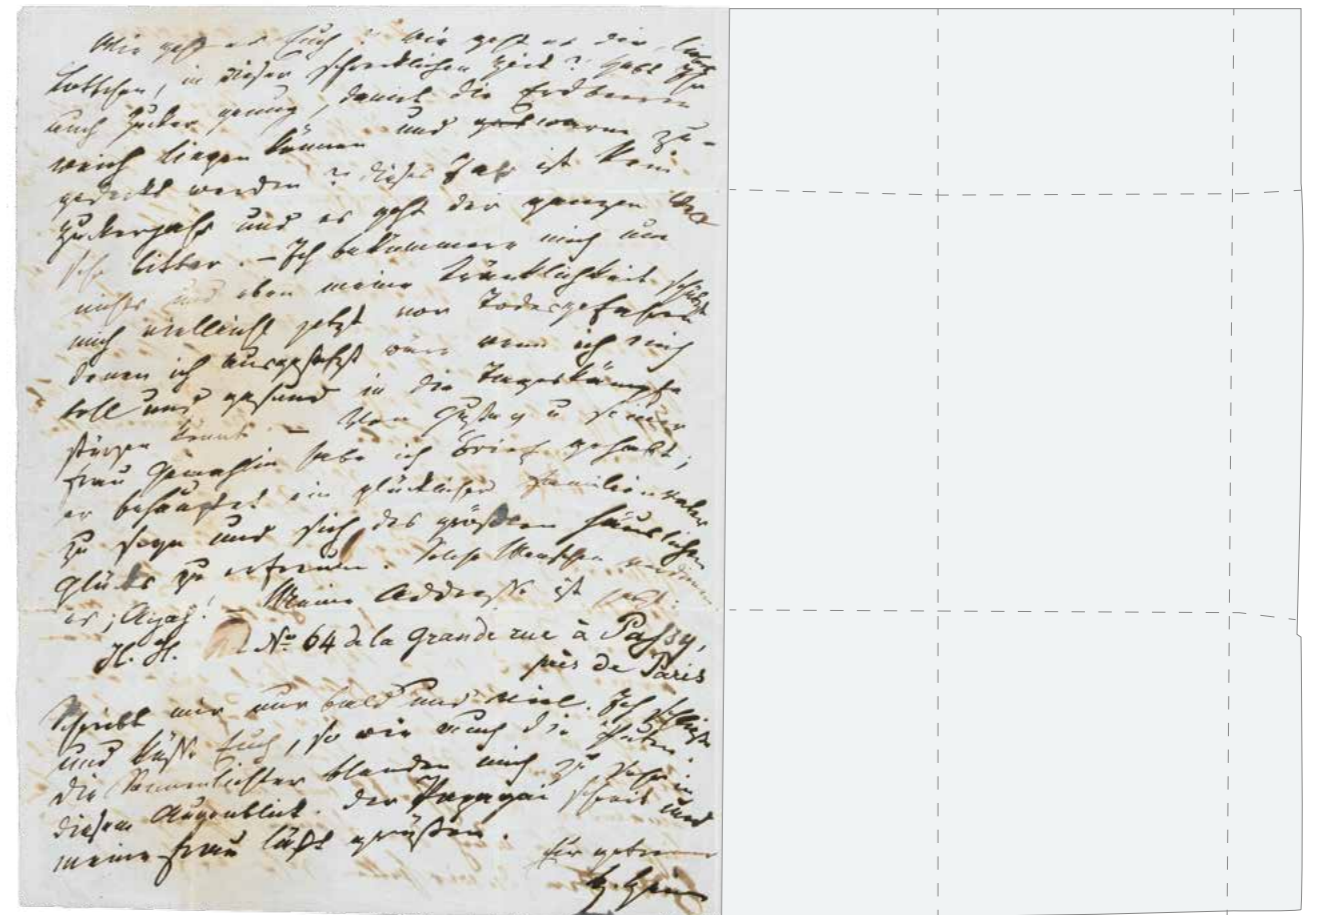 Wie geht es Euch? Wie geht es dir, liebes
Lottchen, in dieser schrecklichen Zeit? Habt Ihr
auch Zucker genug, damit die Erdbeeren
weich liegen können und warm zu-
gedeckt werden? dieses Jahr ist kein
Zuckerjahr und es geht der ganzen Welt
sehr bitter. – Ich bekümmere mich um
nichts und eben meine Kränklichkeit schützt
mich vielleicht jetzt vor Todesgefahren
denen ich ausgesetzt wäre wenn ich mich
toll und gesund in die Tageskämpfe
stürzen könnte. – Von Gustav u seiner
Frau Gemahlin habe ich Brief gehabt;
er behauptet ein glücklicher Familienvater
zu seyn und sich des größten häuslichen
Glücks zu erfreuen. Solche Menschen verdienen
es; – Meine Addresse ist jetzt:
H. H. No 64 de la Grande rue à Passy,
près de Paris
Schreibt mir nur bald und viel. Ich schließe
und küsse Euch, so wie auch die
die Sonnenlichter blenden mich zu sehr in
diesem Augenblick. Der Papagai schreit und
meine Frau läßt grüßen.
Eur getreuer
H. Heine